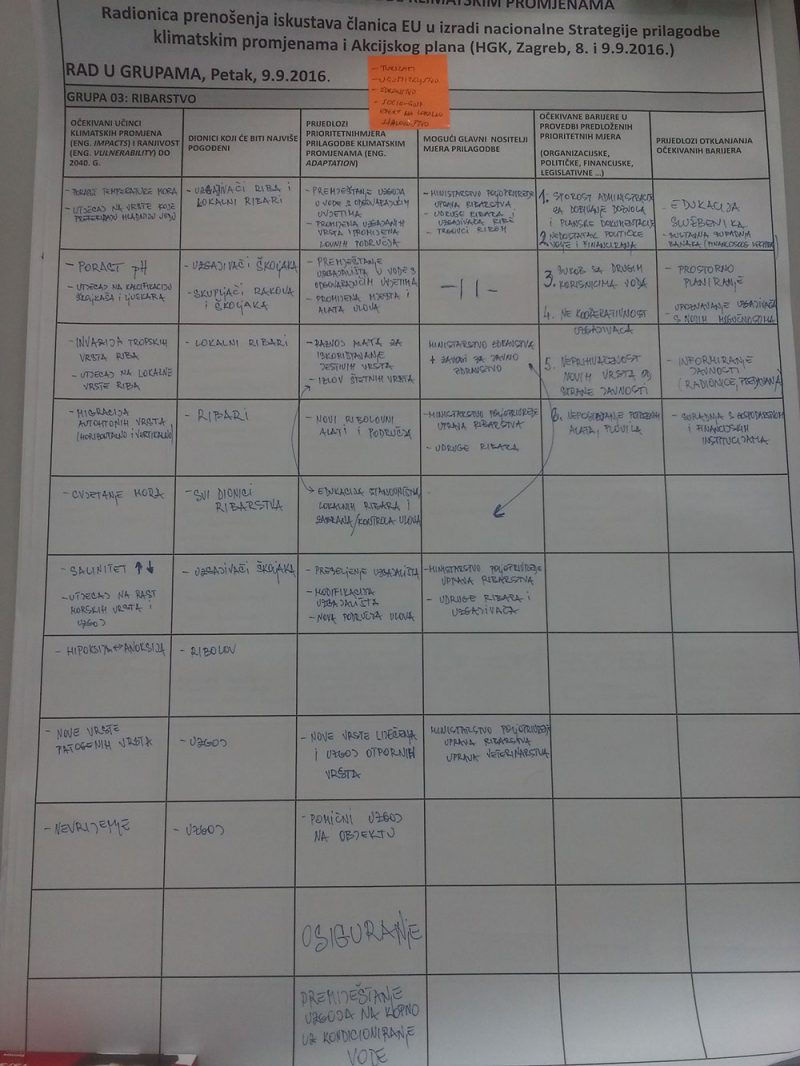 KLIMATSKIM PROMJENAMA
Radionica prenošenja iskustava članica EU u izradi nacionalne Strategije prilagodbe
klimatskim promjenama i Akcijskog plana (HGK, Zagreb, 8. i 9.9.2016.)
RAD U GRUPAMA, Petak, 9.9.2016.
GRUPA 03: RIBARSTVO
OČEKIVANI UČINCI
KLIMATSKIH PROMJENA
(ENG. IMPACTS) I RANJIVOST
(ENG. VULNERABILITY) DO
2040. G.
DIONICI KOJI ĆE BITI NAJVIŠE
POGOĐENI
PRIJEDLOZI
PRIORITETNIHMJERA
PRILAGODBE KLIMATSKIM
PROMJENAMA (ENG.
ADAPTATION)
MOGUĆI GLAVNI NOSITELJI
MJERA PRILAGODBE
OČEKIVANE BARIJERE U
PROVEDBI PREDLOŽENIH
PRIORITETNIH MJERA
(ORGANIZACIJSKE,
POLITIČKE, FINANCIJSKE,
LEGISLATIVNE ...)
PRIJEDLOZI OTKLANJANJA
OČEKIVANIH BARIJERA
- PORAST TEMPERATURE MORA
- UTJECAJ NA VRSTE KOJE
PREFERIRAJU HLADNIJU VODU
- UZGAJIVAČI RIBA I
LOKALNI RIBARI
- PREMJEŠTANJE UZGOJA
U VODE S ODGOVARAJUĆIM
UVJETIMA
- PROMJENA UZGAJANIH
VRSTA I PROMJENA
LOVNIH PODRUČJA
- MINISTARSTVO POLJOPRIVREDE
UPRAVA RIBARSTVA
- UDRUGE RIBARA I
UZGAJIVAČA RIBE
- TRGOVCI RIBOM
1. SPOROST ADMINISTRACIJE
ZA DOBIVANJE DOZVOLA
I PLANSKE DOKUMENTACIJE
2. NEDOSTATAK POLITIČKE
VOLJE I FINANCIRANJA
- EDUKACIJA
SLUŽBENIKA
- PORAST pH
- UTJECAJ NA KALCIFIKACIJU
ŠKOLJKAŠA I LJUSKARA
- UZGAJIVAČI ŠKOLJAKA
- SKUPLJAČI RAKOVA
I ŠKOLJAKA
- PREMJEŠTANJE
UZGAJALIŠTA U VODE S
ODGOVARAJUĆIM UVJETIMA
- PROMJENA MJESTA I
ALATA ULOVA
- II -
3. SUKOB SA DRUGIM
KORISNICIMA VODA
4. NE KOOPERATIVNOST
UZGAJIVAČA
- PROSTORNO
PLANIRANJE
UPOZNAVANJE UZGAJIVAČA
S NOVIM MOGUĆNOSTIMA
- INVAZIJA TROPSKIH
VRSTA RIBA
- UTJECAJ NA LOKALNE
VRSTE RIBA
- LOKALNI RIBARI
- RAZVOJ ALATA ZA
ISKORIŠTAVANJE
JESTIVIH VRSTA
- IZLOV ŠTETNIH VRSTA
MINISTARSTVO ZDRAVSTVA
+ ZAVODI ZA JAVNO
ZDRAVSTVO
5. NEPRIHVAĆENOST
NOVIH VRSTA OD
STRANE JAVNOSTI
- INFORMIRANJE
JAVNOSTI
(RADIONICE, PREDAVANJA)
- MIGRACIJA
AUTOHTONIH VRSTA
(HORIZONTALNO I VERTIKALNO)
- RIBARI
- NOVI RIBOLOVNI
ALATI I PODRUČJA
- MINISTARSTVO POLJOPRIVREDE
UPRAVA RIBARSTVA
- UDRUGE RIBARA
6. NEPOSJEDOVANJE POTREBNIH
ALATA, PLOVILA
- SURADNJA S GOSPODARSTVOM
I FINANCIJSKIM
INSTITUCIJAMA
- CVJETANJE MORA
- SVI DIONICI
RIBARSTVA
- EDUKACIJA STANOVNIŠTVA,
LOKALNIH RIBARA I
ZABRANA/KONTROLA ULOVA
- SALINITET ↑↓
- UTJECAJ NA RAST
MORSKIH VRSTA I
UZGOJ
- UZGAJIVAČI ŠKOLJAKA
- PRESELJENJE UZGAJALIŠTA
- MODIFIKACIJA
UZGAJALIŠTA
- NOVA PODRUČJA ULOVA
- MINISTARSTVO POLJOPRIVREDE
UPRAVA RIBARSTVA
- UDRUGE RIBARA I
UZGAJIVAČA
- HIPOKSIJA ↔ ANOKSIJA
- RIBOLOV
- NOVE VRSTE
PATOGENIH VRSTA
- UZGOJ
- NOVE VRSTE LIJEČENJA
I UZGOJ OTPORNIH
VRSTA
MINISTARSTVO POLJOPRIVREDE
UPRAVA RIBARSTVA
UPRAVA VETERINARSTVA
- NEVRIJEME
- UZGOJ
- POMIČNI UZGOJ
NA OBJEKTU
OSIGURANJE
PREMJEŠTANJE
UZGOJA NA KOPNO
UZ KONDICIONIRANJE
VODE